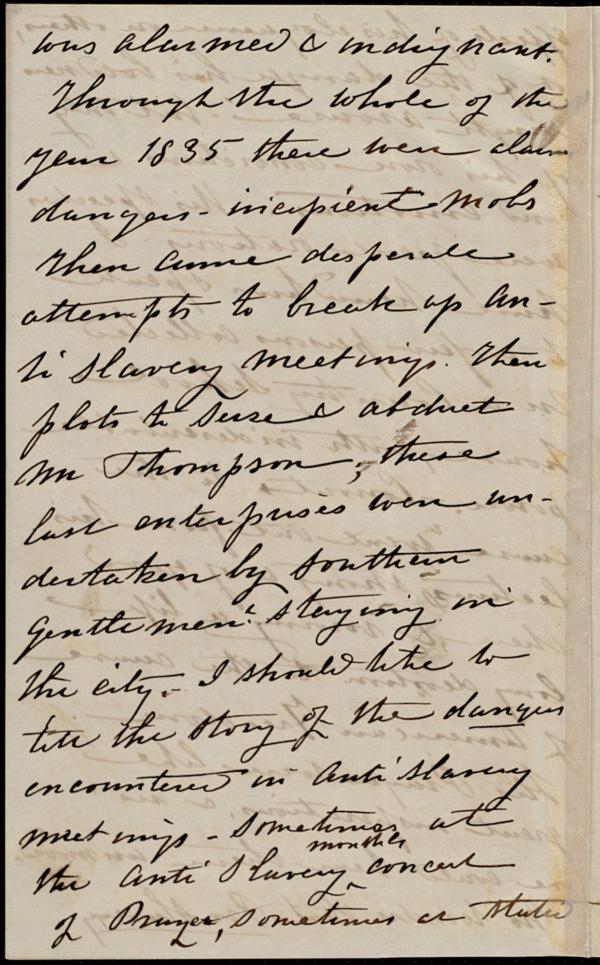 was alarmed & indignant.
Through the whole of the
year 1835 there were alarm
dangers - incipient mobs
then came desperate
attempts to break up An-
ti Slavery meetings. Then
plots to seize & abduct
Mr Thompson, these
last enterprises were un-
dertaken by Southern
Gentlemen staying in
the city. - I should like to
tell the story of the dangers
encountered in Anti Slavery
meetings - Sometimes at
monthly
the Anti Slavery ^ concert
of Prayer, sometimes at